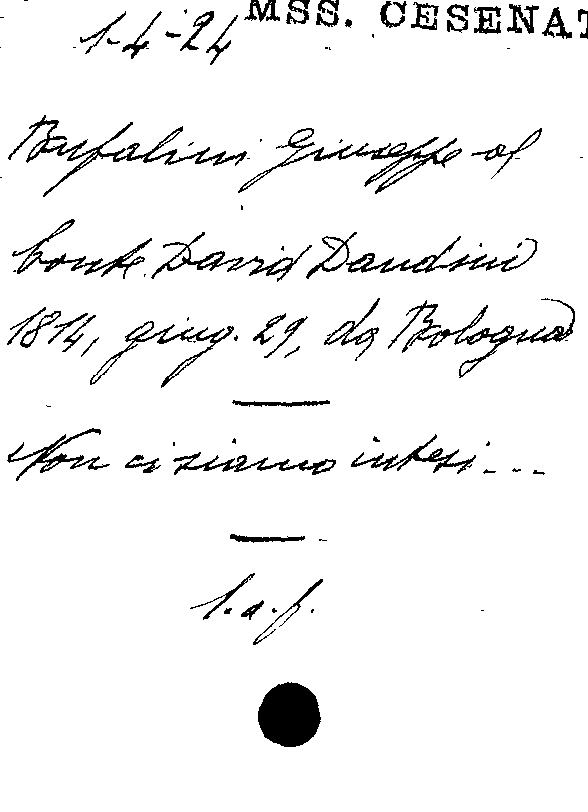 1-4-24 MSS. CESENAT
Bufalini Giuseppe al
Conte David Dandini
1814, giug. 29, da Bologna
Non ci siamo intesi...
l.a.f.